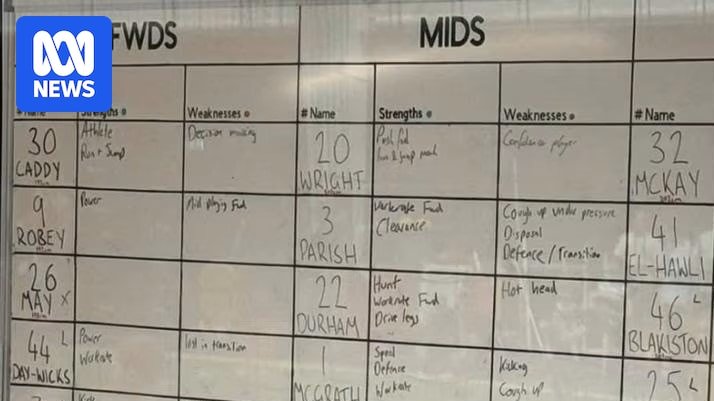 NEWS
FWDS
MIDS
# Name
Strengths
Weaknesses
# Name
Strengths
Weaknesses
# Name
30
CADDY
Athlete
Run + Jump
Decision making
20
WRIGHT
Push fwd
Run & jump
Confidence player
32
MCKAY
9
ROBEY
Power
Mid playing Fwd
3
PARISH
Workrate Fwd
Clearance
Cough up under pressure
Disposal
Defence / Transition
41
EL-HAWLI
26
MAY X
22
DURHAM
Hunt
Workrate Fwd
Drive legs
Hot head
46 L
BLAKISTON
44 L
DAY-WICKS
Power
Workrate
lost in transition
1
MCGRATH
Speed
Defence
Workrate
Kicking
Cough up
25 L